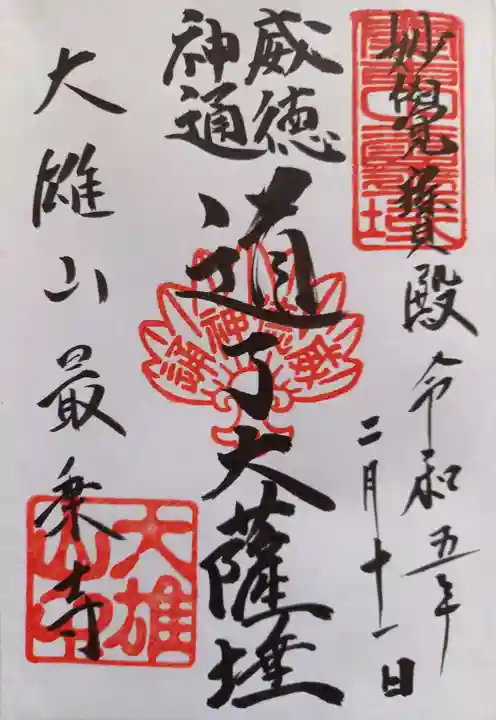 妙覺寳殿
令和五年
二月十一日
威徳
神通
道了大薩埵
大雄山最乗寺
大雄
山印